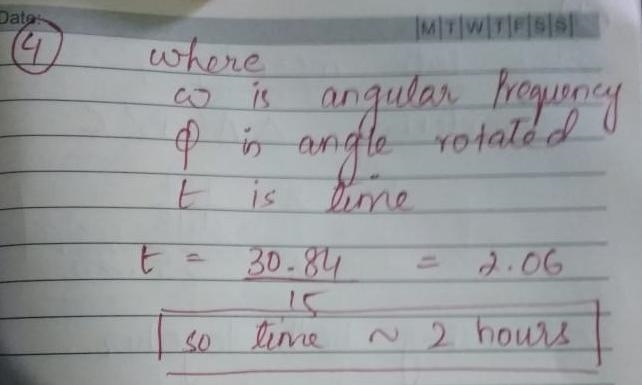 Date:
M T W T F S S
4
where
ω is angular frequency
φ is angle rotated
t is time
t = 30.84 / 15 = 2.06
so time ~ 2 hours